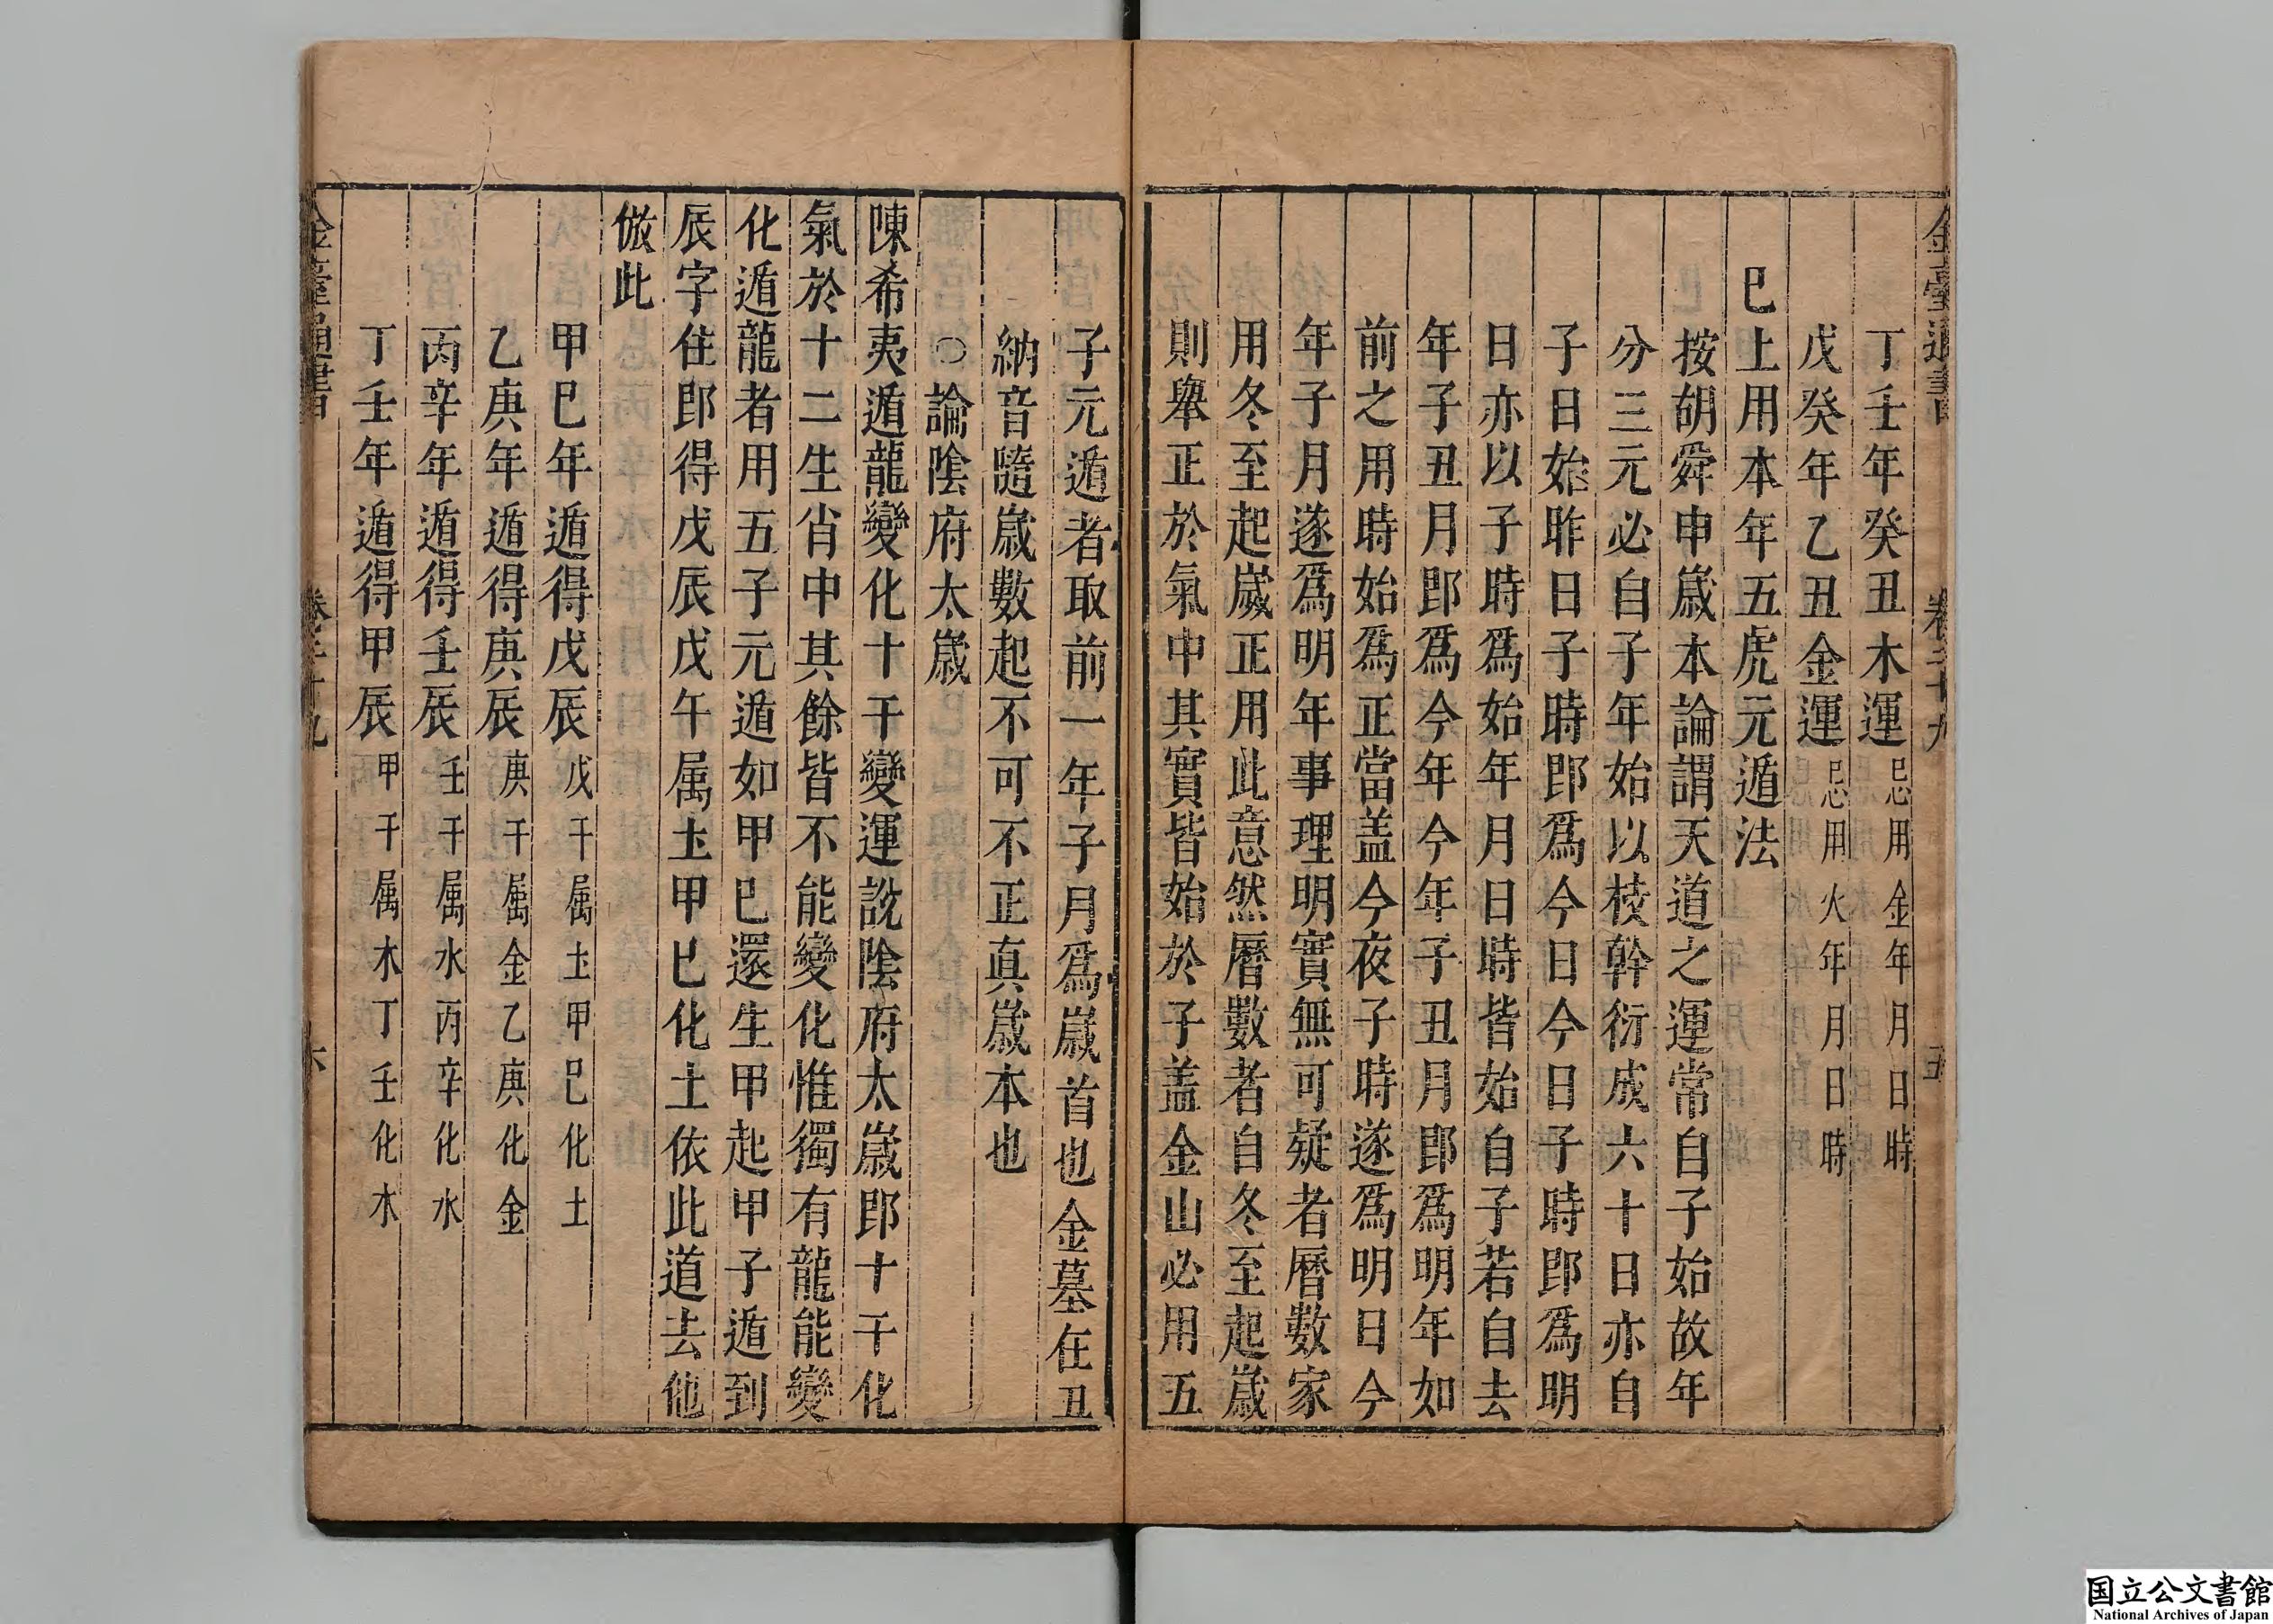 金臺通書 卷二十九 五
丁壬年癸丑木運忌用金年月日時
戊癸年乙丑金運忌用火年月日時
巳上用本年五虎元遁法
按胡舜申歲本論謂天道之運常自子始故年
分三元必自子年始以枝幹衍成六十日亦自
子日始昨日子時即爲今日今日子時即爲明
日亦以子時爲始年月日時皆始自子若自去
年子丑月即爲今年今年子丑月即爲明年如
前之用時始爲正當盖今夜子時遂爲明日今
年子月遂爲明年事理明實無可疑者曆數家
用冬至起歲正用此意然曆數者自冬至起歲
則舉正於氣中其實皆始於子盖金山必用五
子元遁者取前一年子月爲歲首也金墓在丑
納音隨歲數起不可不正真歲本也
○論陰府太歲
陳希夷遁龍變化十干變運說陰府太歲即十干化
氣於十二生肖中其餘皆不能變化惟獨有龍能變
化遁龍者用五子元遁如甲巳還生甲起甲子遁到
辰字住即得戊辰戊午属土甲巳化土依此道去他
倣此
甲巳年遁得戊辰戊干属土甲巳化土
乙庚年遁得庚辰庚干属金乙庚化金
丙辛年遁得壬辰壬干属水丙辛化水
丁壬年遁得甲辰甲干属木丁壬化木
金臺通書 卷二十九 六
国立公文書館
National Archives of Japan